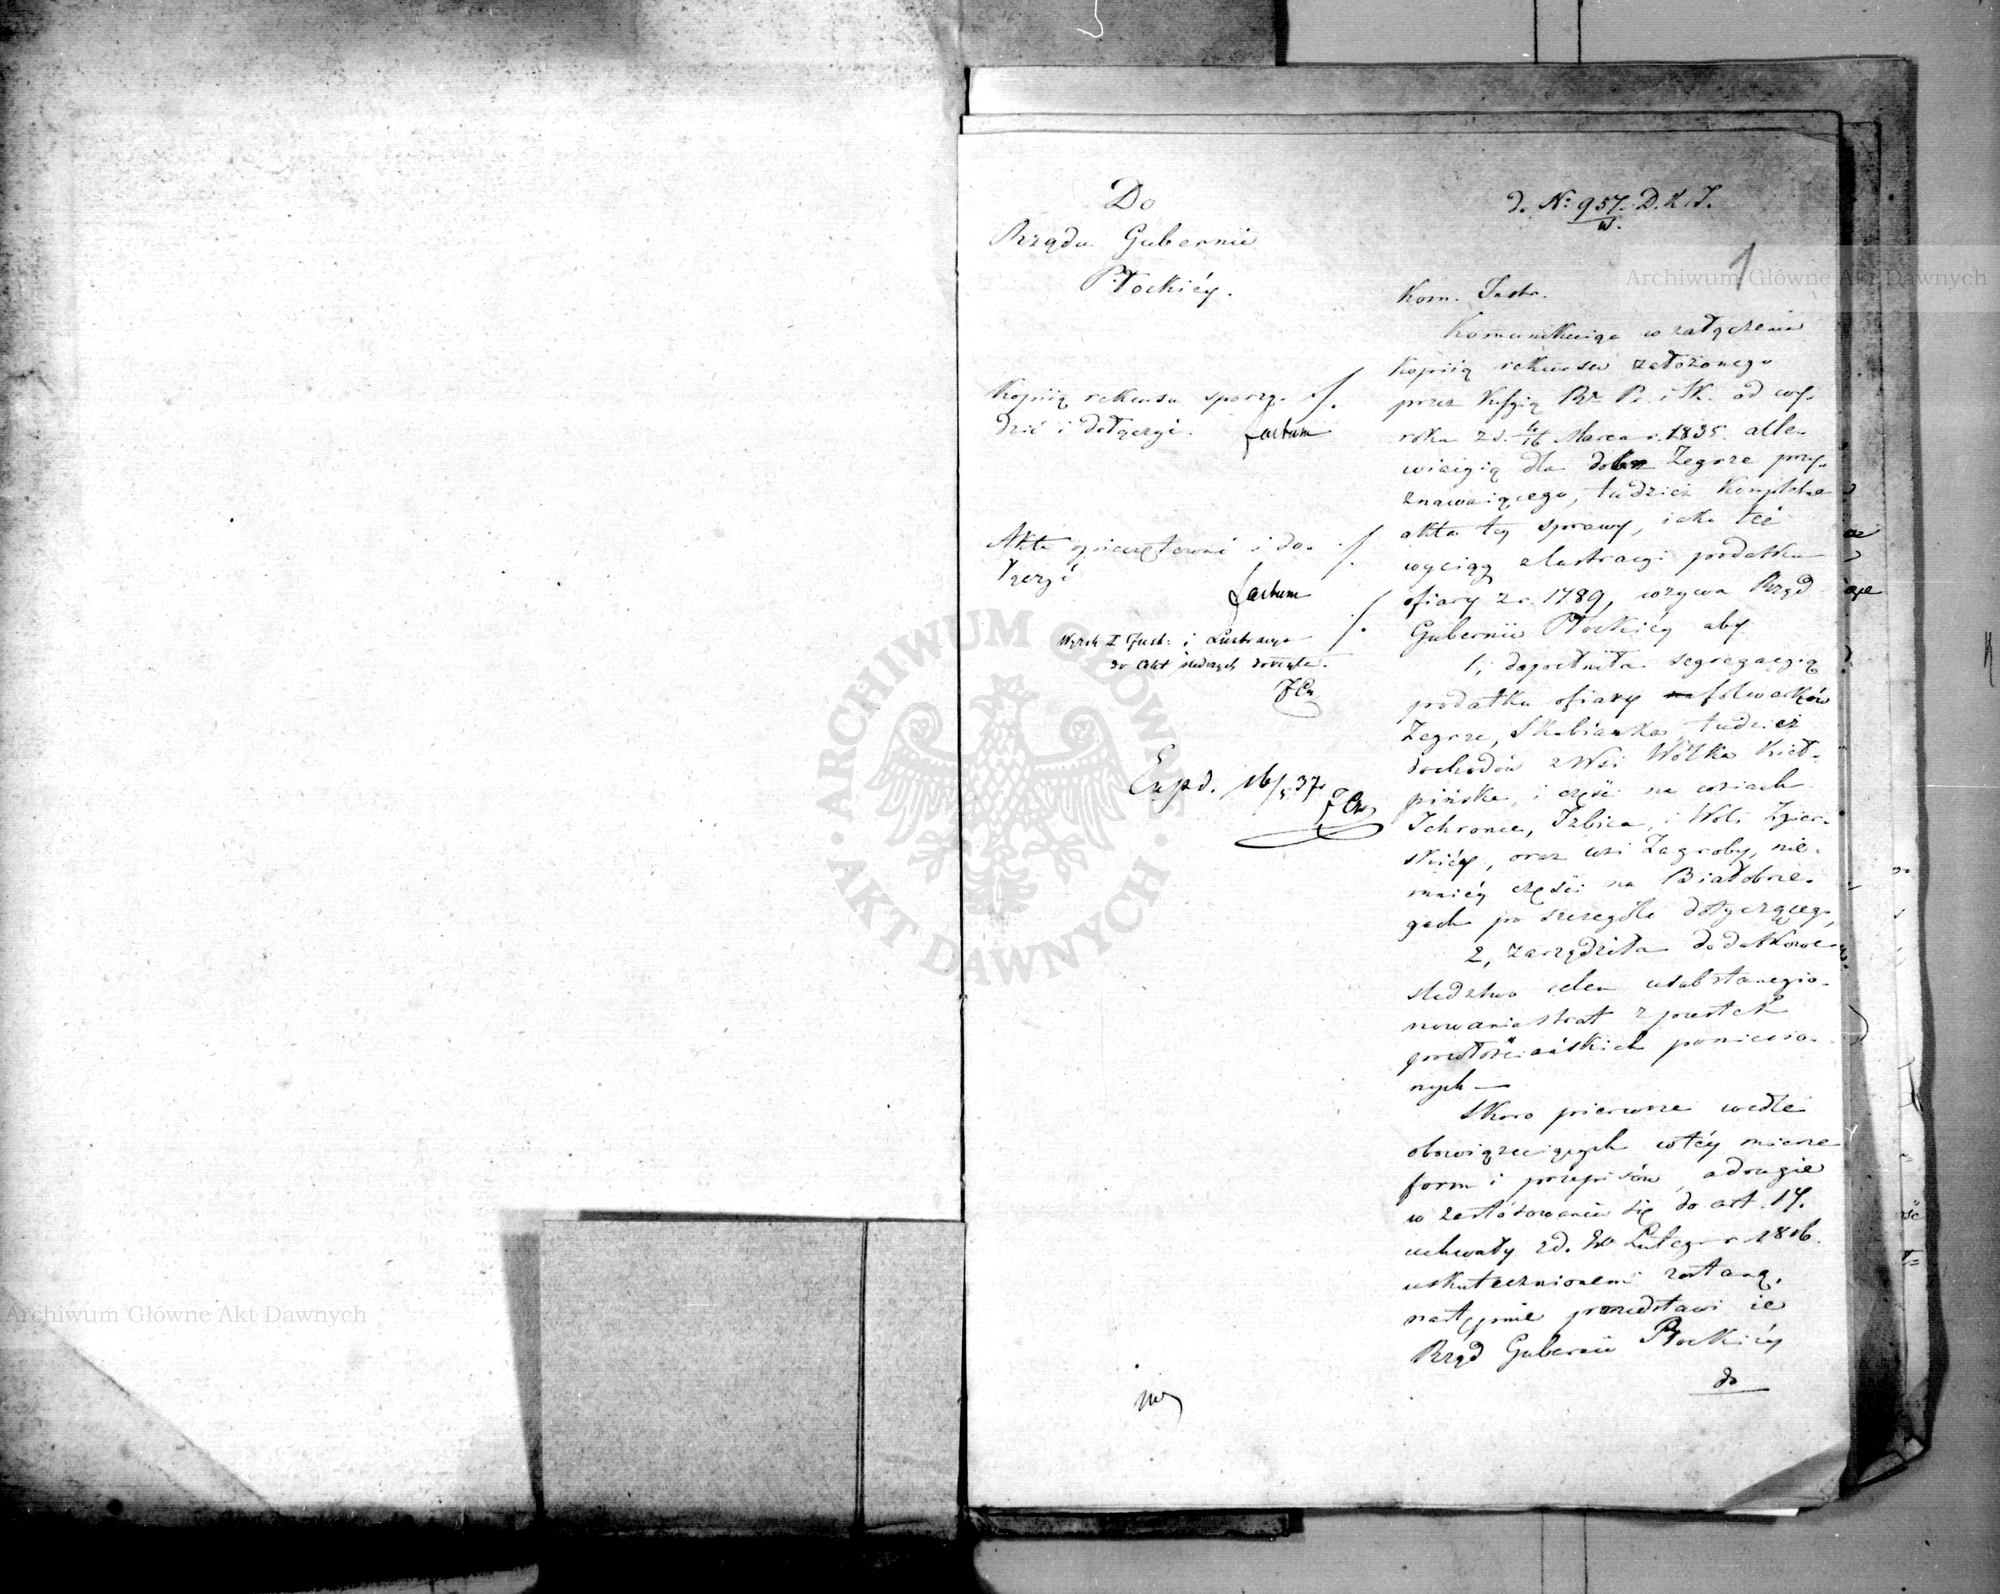 Do
Rządu Gubernii
Płockiéy.
Kopiią rekursu sporzą-
dzić i dołączyć. factum
Akta opieczętować i do-
łączyć
factum
Wyrok I Inst: i Lustracya
do Akt
Exped. 16/5 37
d. N: 957. D.K.I.
w.
1
Kom. Instr.
Kommunikuiąc w załączeniu
kopiią rekursu założonego
przez Kssyią Rz. P. i Sk. od wy-
roku z d. 4/16 Marca r. 1835. alle-
wiacyią dla dobr Zegrze przy-
znawaiącego, tudzież kompletne
akta téy sprawy, iako też
wyciąg z lustracyi podatku
ofiary z r. 1789, wzywa Rząd
Gubernii Płockiéy aby
1, dopełniła segregacyią
podatku ofiary folwarków
Zegrze, Skubianka, tudzież
dochodów z Wsi Wólka Kieł-
pińska, i części na wsiach
Ichronce, Izbica, i Woli Zgier-
skiéy, oraz wsi Zagroby, nie-
mniéy części na Białobrze-
gach po szczególe dotyczącego,
2, zarządziła dodatkowe
śledztwo celem usubstancyio-
nowania strat z pustek
gowłościańskich poniesio-
nych —
Skoro pierwsze wedle
obowiązuiących w téy mierze
form i przepisów, a drugie
w zastósowaniu się do art. 17.
uchwały z d. Lutego r. 1816.
uskutecznionemi zostaną,
następnie przedstawi ie
Rząd Gubernii Płockiéy
do
Archiwum Główne Akt Dawnych
Archiwum Główne Akt Dawnych
ARCHIWUM GŁÓWNE
AKT DAWNYCH